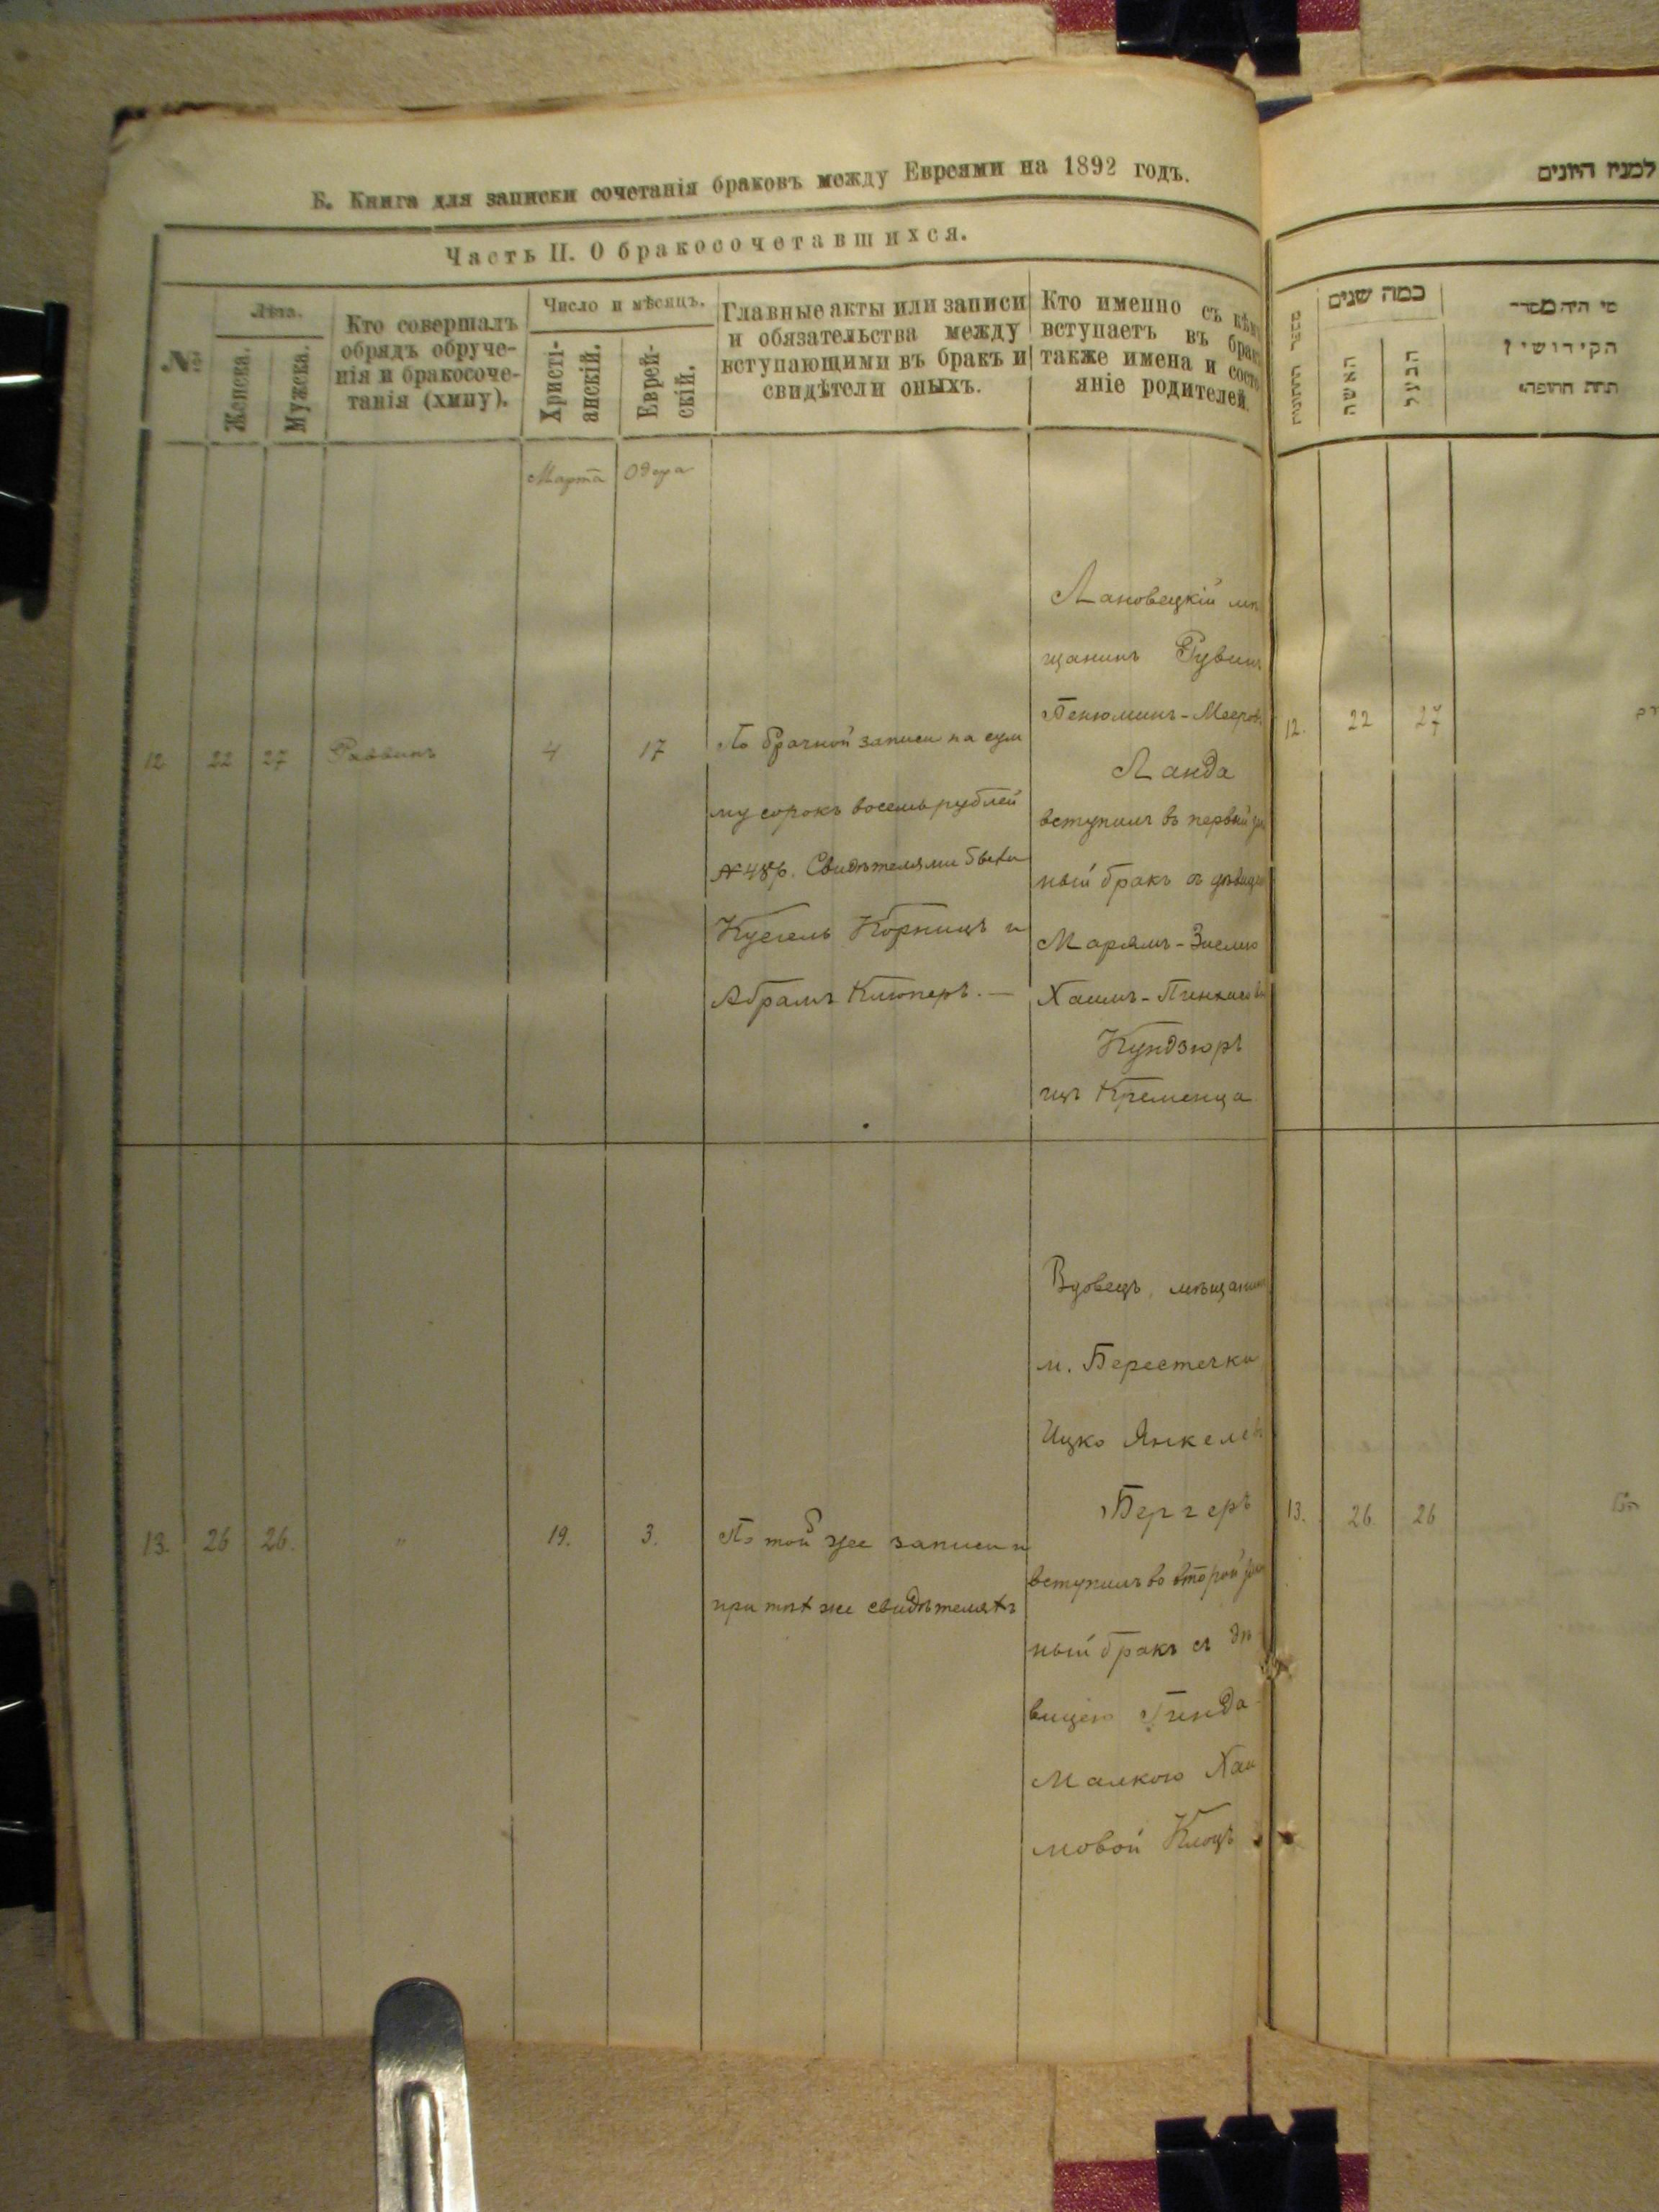 Б. Книга для записки сочетанія браковъ между Евреями на 1892 годъ.
Часть II. О бракосочетавшихся.
№
Лѣта.
Женска.
Мужска.
Кто совершалъ
обрядъ обруче-
нія и бракосоче-
танія (хипу).
Число и мѣсяцъ.
Христі-
анскій.
Еврей-
скій.
Главные акты или записи
и обязательства между
вступающими въ бракъ и
свидѣтели оныхъ.
Кто именно съ кѣмъ
вступаетъ въ брак
также имена и состо
яніе родителей.
Марта Одера
12 22 27 Раввинъ 4 17
По брачной записи на сум
му сорокъ восемь рублей
48 р. Свидѣтелями были
Корницъ и
Абрамъ Клюперъ. —
Лановецкій мѣ
щанинъ Рувинъ
Бенюминъ-Мееров
Ланда
вступилъ въ первый за
ный бракъ съ дѣвице
Марьямъ-
Хаимъ-Пинхасов
Кундзюръ
изъ Кременца
13. 26 26. " 19. 3.
По той же записи и
при тѣх же свидѣтеляхъ
Вдовецъ, мѣщанинъ
м. Берестечка
Ицко Янкелев
Бергеръ
вступилъ во второй за
ный бракъ съ дѣ
вицею Гинда
Малкою Хаи
мовой Клоцъ
למנין היונים
כמה שנים
האשה
הבעל
מי היה מסדר
הקידושין
תחת החופה
12. 22 27
13. 26. 26